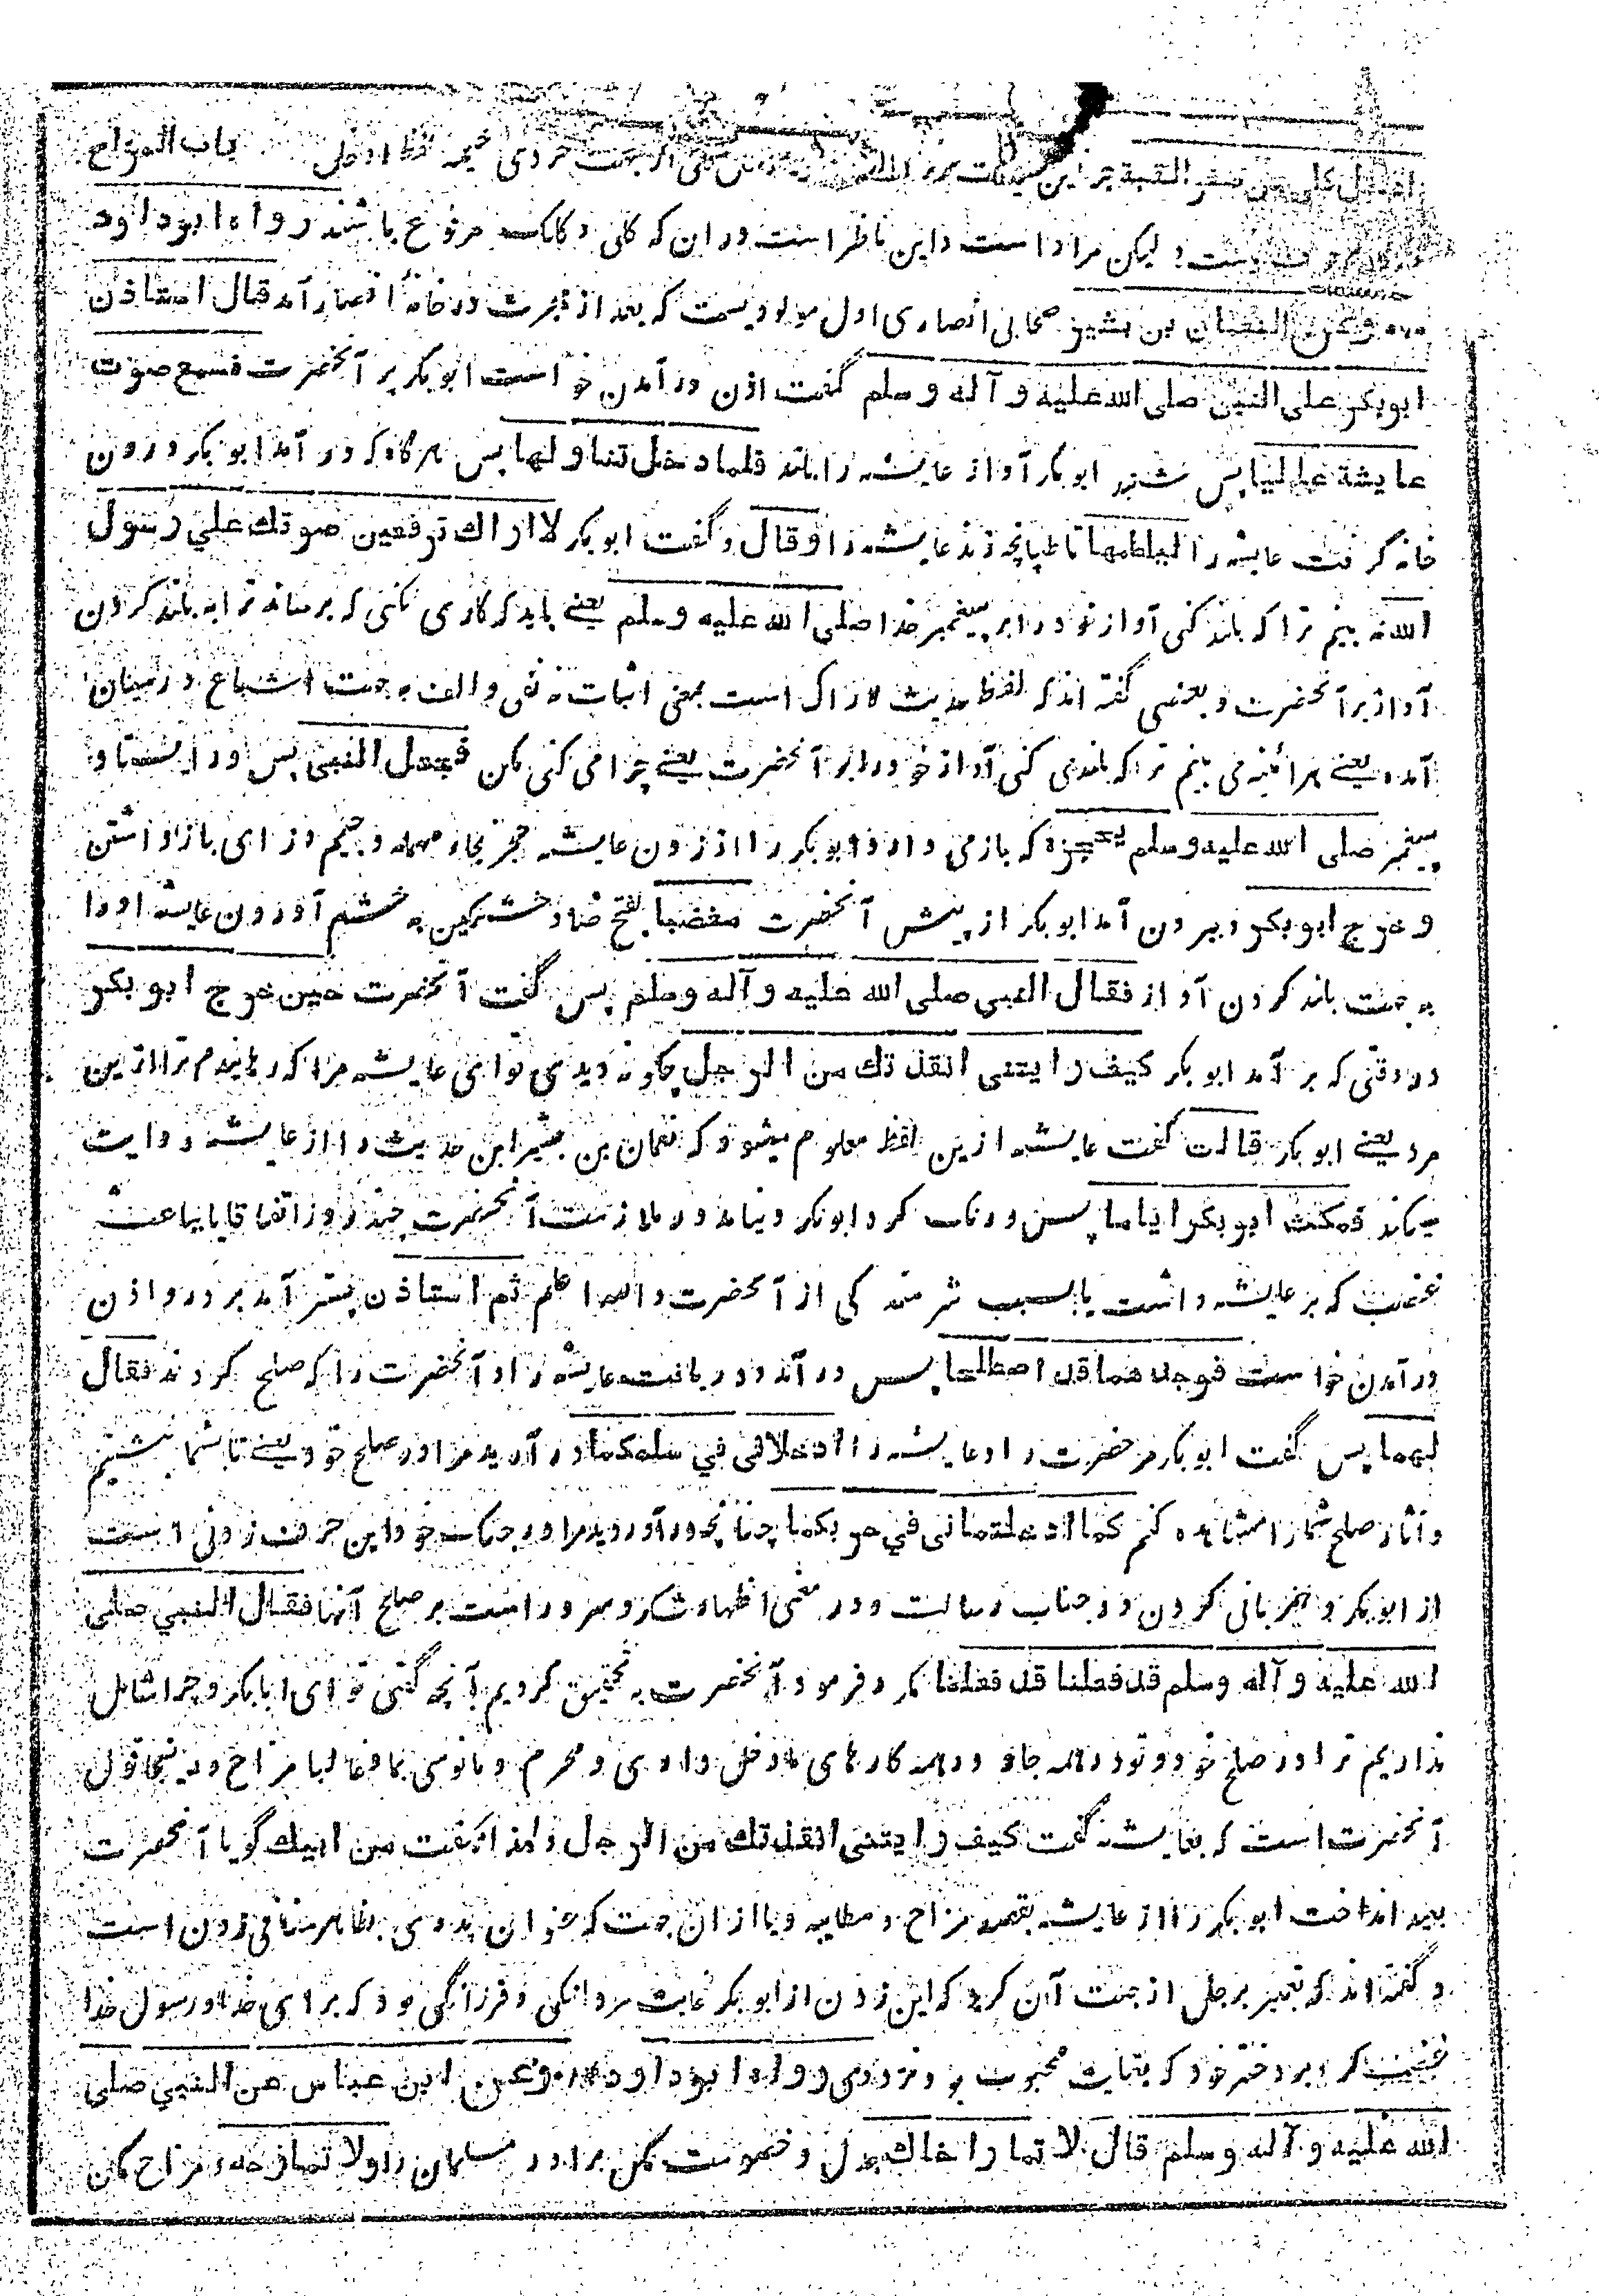 باب المزاح
ادخل كلي من صغر القبة جز این نیست كلی از جهت خردی خیمه لفظ ادخل
نیست و لیکن مراد است و این ناظر است در ان که کلی و کلک مرفوع باشند رواه ابوداود
وعن النعمان بن بشیر صحابی انصاری اول مولودیست که بعد از هجرت در خانهٔ انصار آمد قال استاذن
ابوبكر على النبي صلى الله عليه و آله و سلم گفت اذن در آمدن خواست ابو بکر بر آنحضرت فسمع صوت
عايشة عاليا پس شنید ابو بکر آواز عایشه را بلند فلما دخل تناولها پس هرگاه که در آمد ابو بکر درون
خانه گرفت عایشه را ليلطمها تا طپانچه زند عایشه را وقال و گفت ابو بکر لا اراك ترفعين صوتك علي رسول
الله نه بینم ترا که بلند کنی آواز خود را بر پیغمبر خدا صلى الله عليه و سلم یعنے باید که کاری نکنی که برساند ترا به بلند کردن
آواز بر آنحضرت و بعضی گفته اند که لفظ حدیث لاراک است بمعنی اثبات نه نفی و الف به جهت اشباع در میان
آمده یعنے هر آئینه می بینم ترا که بلند می کنی آواز خود را بر آنحضرت یعنے چرا می کنی مکن فجعل النبي پس در ایستاد
پیغمبر صلى الله عليه و سلم يحجزه که باز می دارد ابو بکر را از زدن عایشه حجز بحاء مهمله و جیم و زای باز داشتن
و خرج ابو بكر و بیرون آمد ابو بکر از پیش آنحضرت مغضبا بفتح ضاد خشمگین به خشم آوردن عایشه او را
به جهت بلند کردن آواز فقال النبي صلى الله عليه و آله و سلم پس گفت آنحضرت حين خرج ابو بكر
در وقتی که بر آمد ابو بکر كيف رايتني انقذتك من الرجل چگونه دیدی تو ای عایشه مرا که رهانیدم ترا ازین
مرد یعنے ابو بکر قالت گفت عایشه ازین لفظ معلوم میشود که نعمان بن بشیر این حدیث را از عایشه روایت
میکند فمكث ابو بكر اياما پس درنگ کرد ابو بکر و نیامد در ملازمت آنحضرت چند روز اتفاقا یا بباعث
غضب که بر عایشه داشت یا بسبب شرمندگی از آنحضرت والله اعلم ثم استاذن پستر آمد بر در و اذن
در آمدن خواست فوجدهما قد اصطلحا پس در آمد و دریافت عایشه را و آنحضرت را که صلح کردند فقال
لهما پس گفت ابو بکر مر حضرت را و عایشه را ادخلاني في سلمكما در آرید مرا در صلح خود یعنے تا بشما بنشینم
و آثار صلح شما را مشاهده کنم كما ادخلتماني في حربكما چنانچه در آوردید مرا در جنگ خود این حرفت زدنی است
از ابو بکر و همزبانی کردن در جناب رسالت و در معنی اظهار شکر و سرور است بر صلح آنها فقال النبي صلى
الله عليه و آله وسلم قد فعلنا قد فعلنا مکرر فرمود آنحضرت به تحقیق کردیم آنچه گفتی تو ای ابا بکر و چرا شامل
نداریم ترا در صلح خود و تو در همه جا و در همه کارهای ما دخل داری و محرم و مانوسی بما و غالبا مزاح درینجا قول
آنحضرت است که بعایشه گفت كيف رايتني انقذتك من الرجل و لهذا نگفت من ابيك گویا آنحضرت
بعید انداخت ابو بکر را از عایشه بقصد مزاح و مطایبه و یا از ان جهت که عنوان پدری بظاهر منافی زدن است
و گفته اند که تعبیر برجل از جهت آن کرد که این زدن از ابو بکر غایت مردانگی و فرزانگی بود که برای خدا و رسول خدا
غضب کرد بر دختر خود که بغایت محبوب بود نزد وی رواه ابو داود وعن ابن عباس عن النبي صلى
الله عليه و آله وسلم قال لا تمار اخاك جدل و خصومت مکن برادر مسلمان را ولا تمازحه و مزاح مکن